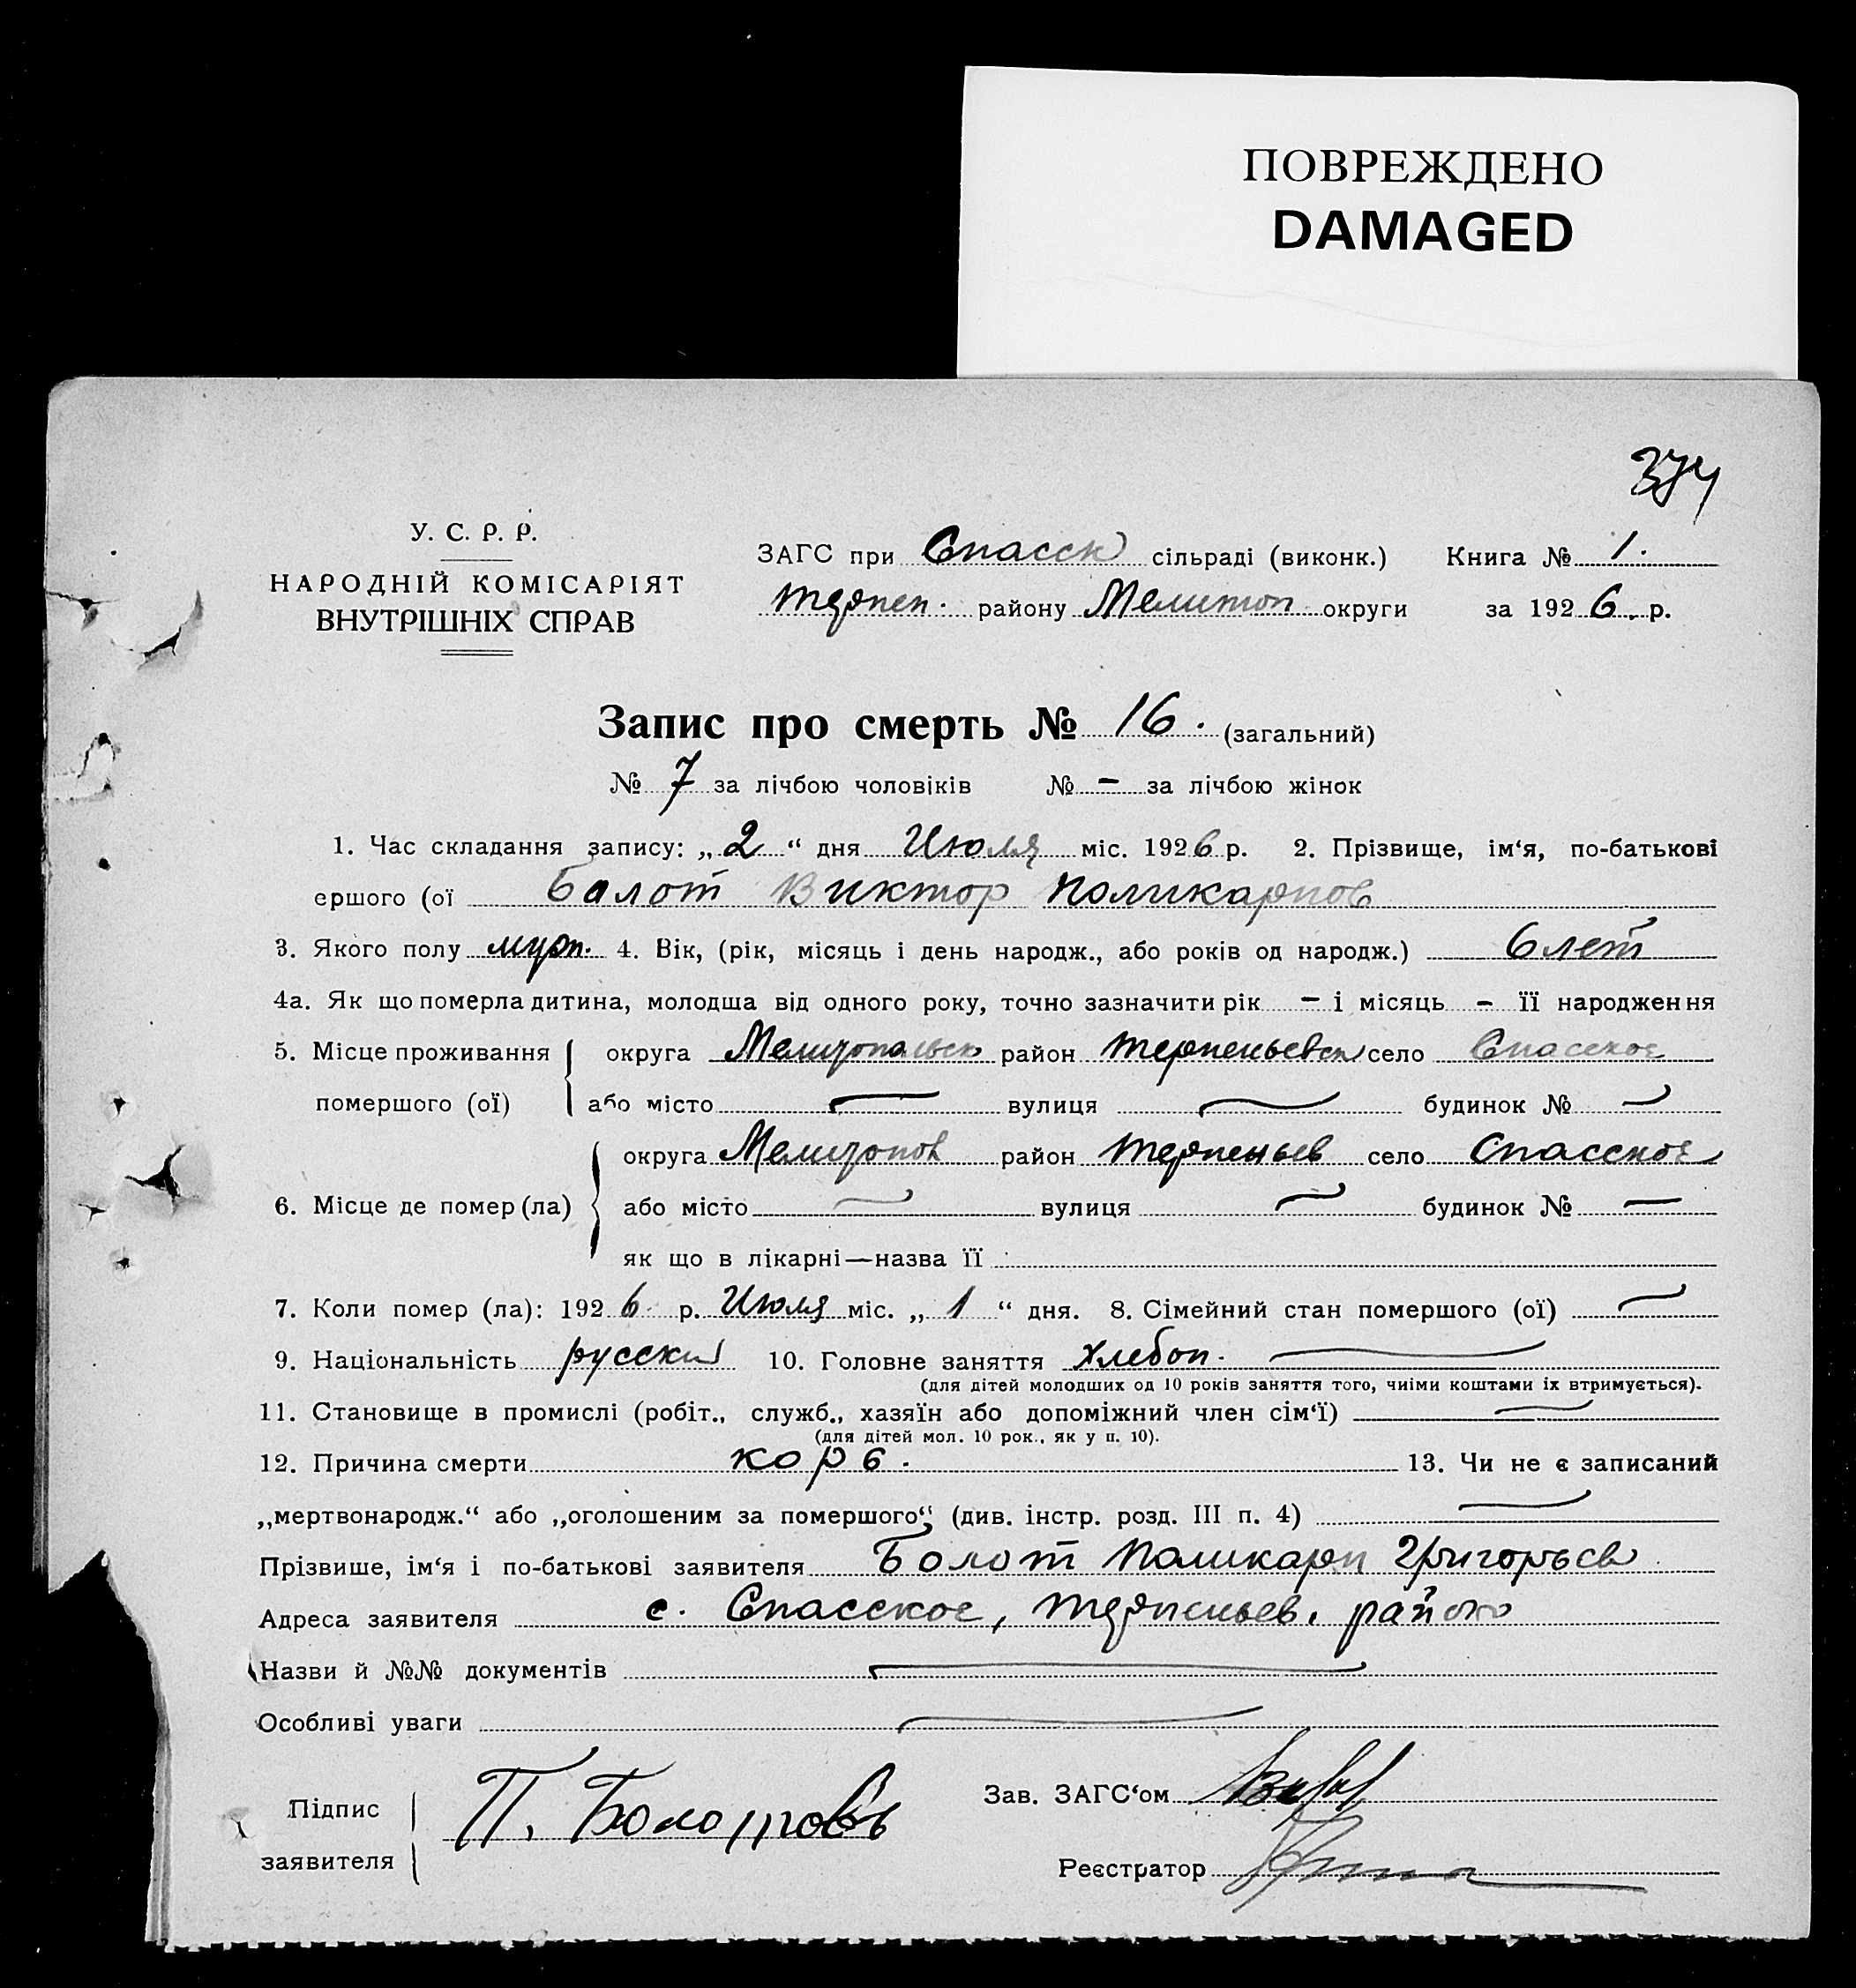 ПОВРЕЖДЕНО
DAMAGED
374
У. С. Р. Р.
НАРОДНІЙ КОМІСАРІЯТ
ВНУТРІШНІХ СПРАВ
ЗАГС при Спасск сільраді (виконк.) Книга № 1.
Терпен. району Мелитоп округи за 1926 р.
Запис про смерть № 16. (загальний)
№ 7 за лічбою чоловіків № - за лічбою жінок
1. Час складання запису: „2“ дня Июля міс. 1926 р. 2. Прізвище, ім‘я, по-батькові
ершого (ої Болот Виктор Поликарпов
3. Якого полу 4. Вік, (рік, місяць і день народж., або років од народж.) 6 лет
4а. Як що померла дитина, молодша від одного року, точно зазначити рік - і місяць - її народження
5. Місце проживання округа Мелитопольск район Терпеньевск село Спасское
помершого (ої) або місто — вулиця — будинок № —
округа Мелитопов район Терпеньев село Спасское
6. Місце де помер (ла) або місто — вулиця — будинок № —
як що в лікарні—назва її
7. Коли помер (ла): 1926 р. Июля міс. „1“ дня. 8. Сімейний стан помершого (ої) —
9. Національність русский 10. Головне заняття Хлебоп. —
(для дітей молодших од 10 років заняття того, чиїми коштами їх втримується).
11. Становище в промислі (робіт., служб., хазяїн або допоміжний член сім‘ї) —
(для дітей мол. 10 рок., як у п. 10).
12. Причина смерти корь. 13. Чи не є записаний
„мертвонародж.“ або „оголошеним за помершого“ (див. інстр. розд. III п. 4) —
Прізвише, ім‘я і по-батькові заявителя Болот Поликарп Григорьев
Адреса заявителя с. Спасское, Терпеньев. район
Назви й №№ документів —
Особливі уваги —
Підпис заявителя П. Болотовъ
Зав. ЗАГС‘ом
Реєстратор